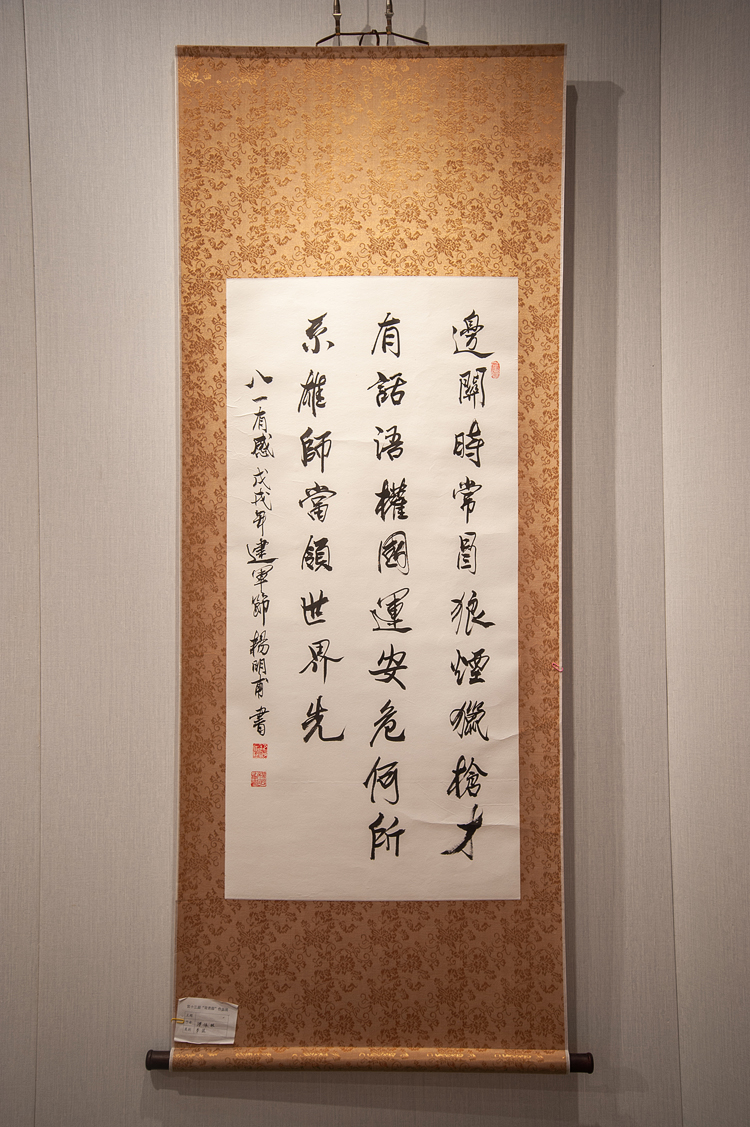 邊關時常冒狼煙獵槍才
有話语權國運安危何所
系雄師當領世界先
八一有感戊戌年建軍節楊明甫書